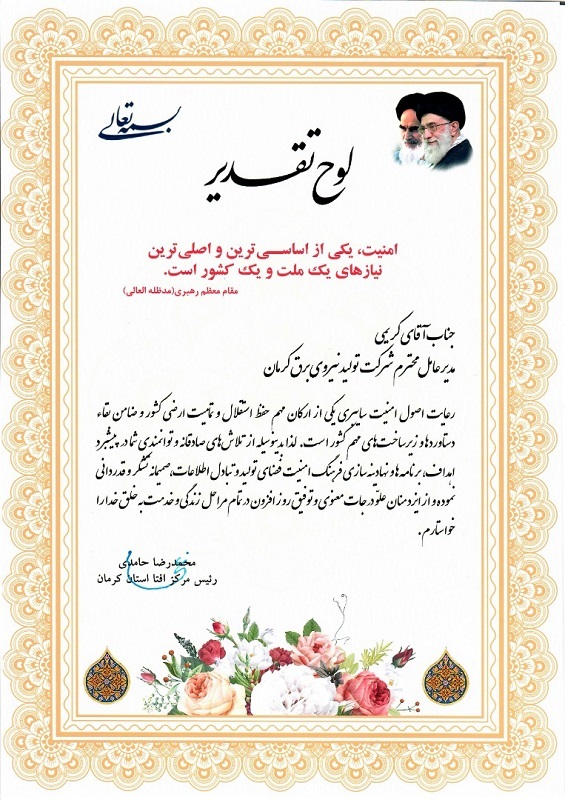 بسمه تعالی
لوح تقدیر
امنیت، یکی از اساسی‌ترین و اصلی‌ترین
نیازهای یک ملت و یک کشور است.
مقام معظم رهبری(مدظله العالی)
جناب آقای کریمی
مدیرعامل محترم شرکت تولید نیروی برق کرمان
رعایت اصول امنیت سایبری یکی از ارکان مهم حفظ استقلال و تمامیت ارضی کشور و ضامن بقاء
دستاوردها و زیرساخت‌های مهم کشور است. لذا بدینوسیله از تلاش‌های صادقانه و توانمندی شما در پیشبرد
اهداف، برنامه‌ها و نهادینه سازی فرهنگ امنیت فضای تولید و تبادل اطلاعات، صمیمانه تشکر و قدردانی
نموده و از ایزد منان علو درجات معنوی و توفیق روزافزون در تمام مراحل زندگی و خدمت به خلق خدا را
خواستارم.
محمدرضا حامدی
رئیس مرکز افتا استان کرمان